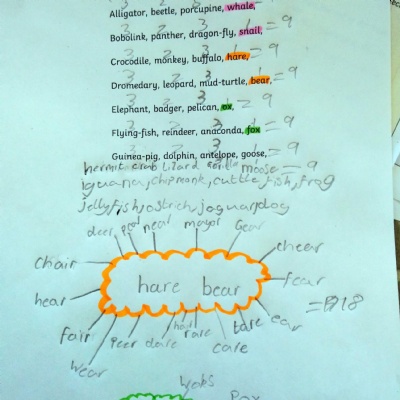 3 2 3 1
Alligator, beetle, porcupine, whale,
3 2 3 1 = 9
Bobolink, panther, dragon-fly, snail,
3 2 3 1 = 9
Crocodile, monkey, buffalo, hare,
3 2 3 1 = 9
Dromedary, leopard, mud-turtle, bear,
3 2 3 1 = 9
Elephant, badger, pelican, ox,
3 2 3 1 = 9
Flying-fish, reindeer, anaconda, fox
3 2 3 1 = 9
Guinea-pig, dolphin, antelope, goose,
hermit crab Lizard moose = 9
iguana, chipmonk, cuttle fish, frog
jellyfish, ostrich, jaguar, dog
deer neal mayor Gear
chair cheer
hare bear
hear fear
fair Peer dare hair rare care tare ear
Wear